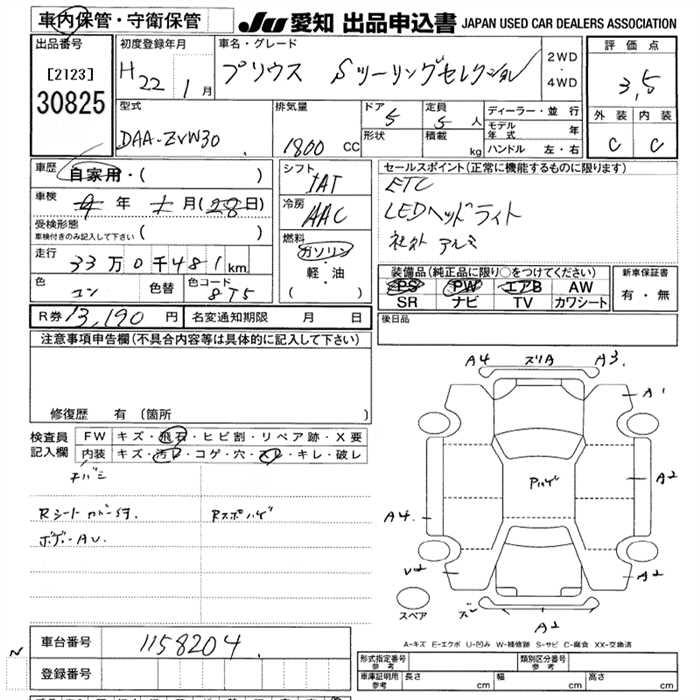 車内保管・守衛保管
JU 愛知 出品申込書 JAPAN USED CAR DEALERS ASSOCIATION
出品番号
[2123]
30825
初度登録年月
H 22 1 月
車名・グレード
プリウス Sツーリングセレクション
2WD
・
4WD
評価点
3.5
外装 内装
C C
型式
DAA-ZVW30
排気量
1800 CC
ドア 5
形状
定員 5 人
積載 kg
ディーラー・並行
モデル年式 年
ハンドル 左・右
車歴
自家用・( )
車検 年 月(28日)
受検形態
車検付きのみ記入して下さい ( )
走行
33万0千481km
色 コン 色替 色コード 8T5
シフト
IAT
冷房
AAC
燃料
ガソリン
・
軽・油
( )
セールスポイント(正常に機能するものに限ります)
ETC
LEDヘッドライト
社外 アルミ
装備品(純正品に限り○をつけてください)
PS PW エアB AW
SR ナビ TV カワシート
新車保証書
有・無
R券 13,190 円 名変通知期限 月 日
後日品
注意事項申告欄(不具合内容等は具体的に記入して下さい)
修復歴 有 (箇所 )
検査員
記入欄
FW キズ・飛石・ヒビ割・リペア跡・X要
内装 キズ・汚レ・コゲ・穴・スレ・キレ・破レ
Rシート カバーS付.
ボデーAU.
Rスポハゲ
A4 スリA A3
A1
A2
Pハゲ
A4
U2
A2
スペア
A2
A-キズ E-エクボ U-凹み W-補修跡 S-サビ C-腐食 XX-交換済
車台番号 1158204
登録番号
N
形式指定番号
参考
類別区分番号
参考
車庫証明用
参考
長さ cm 幅 cm 高さ cm